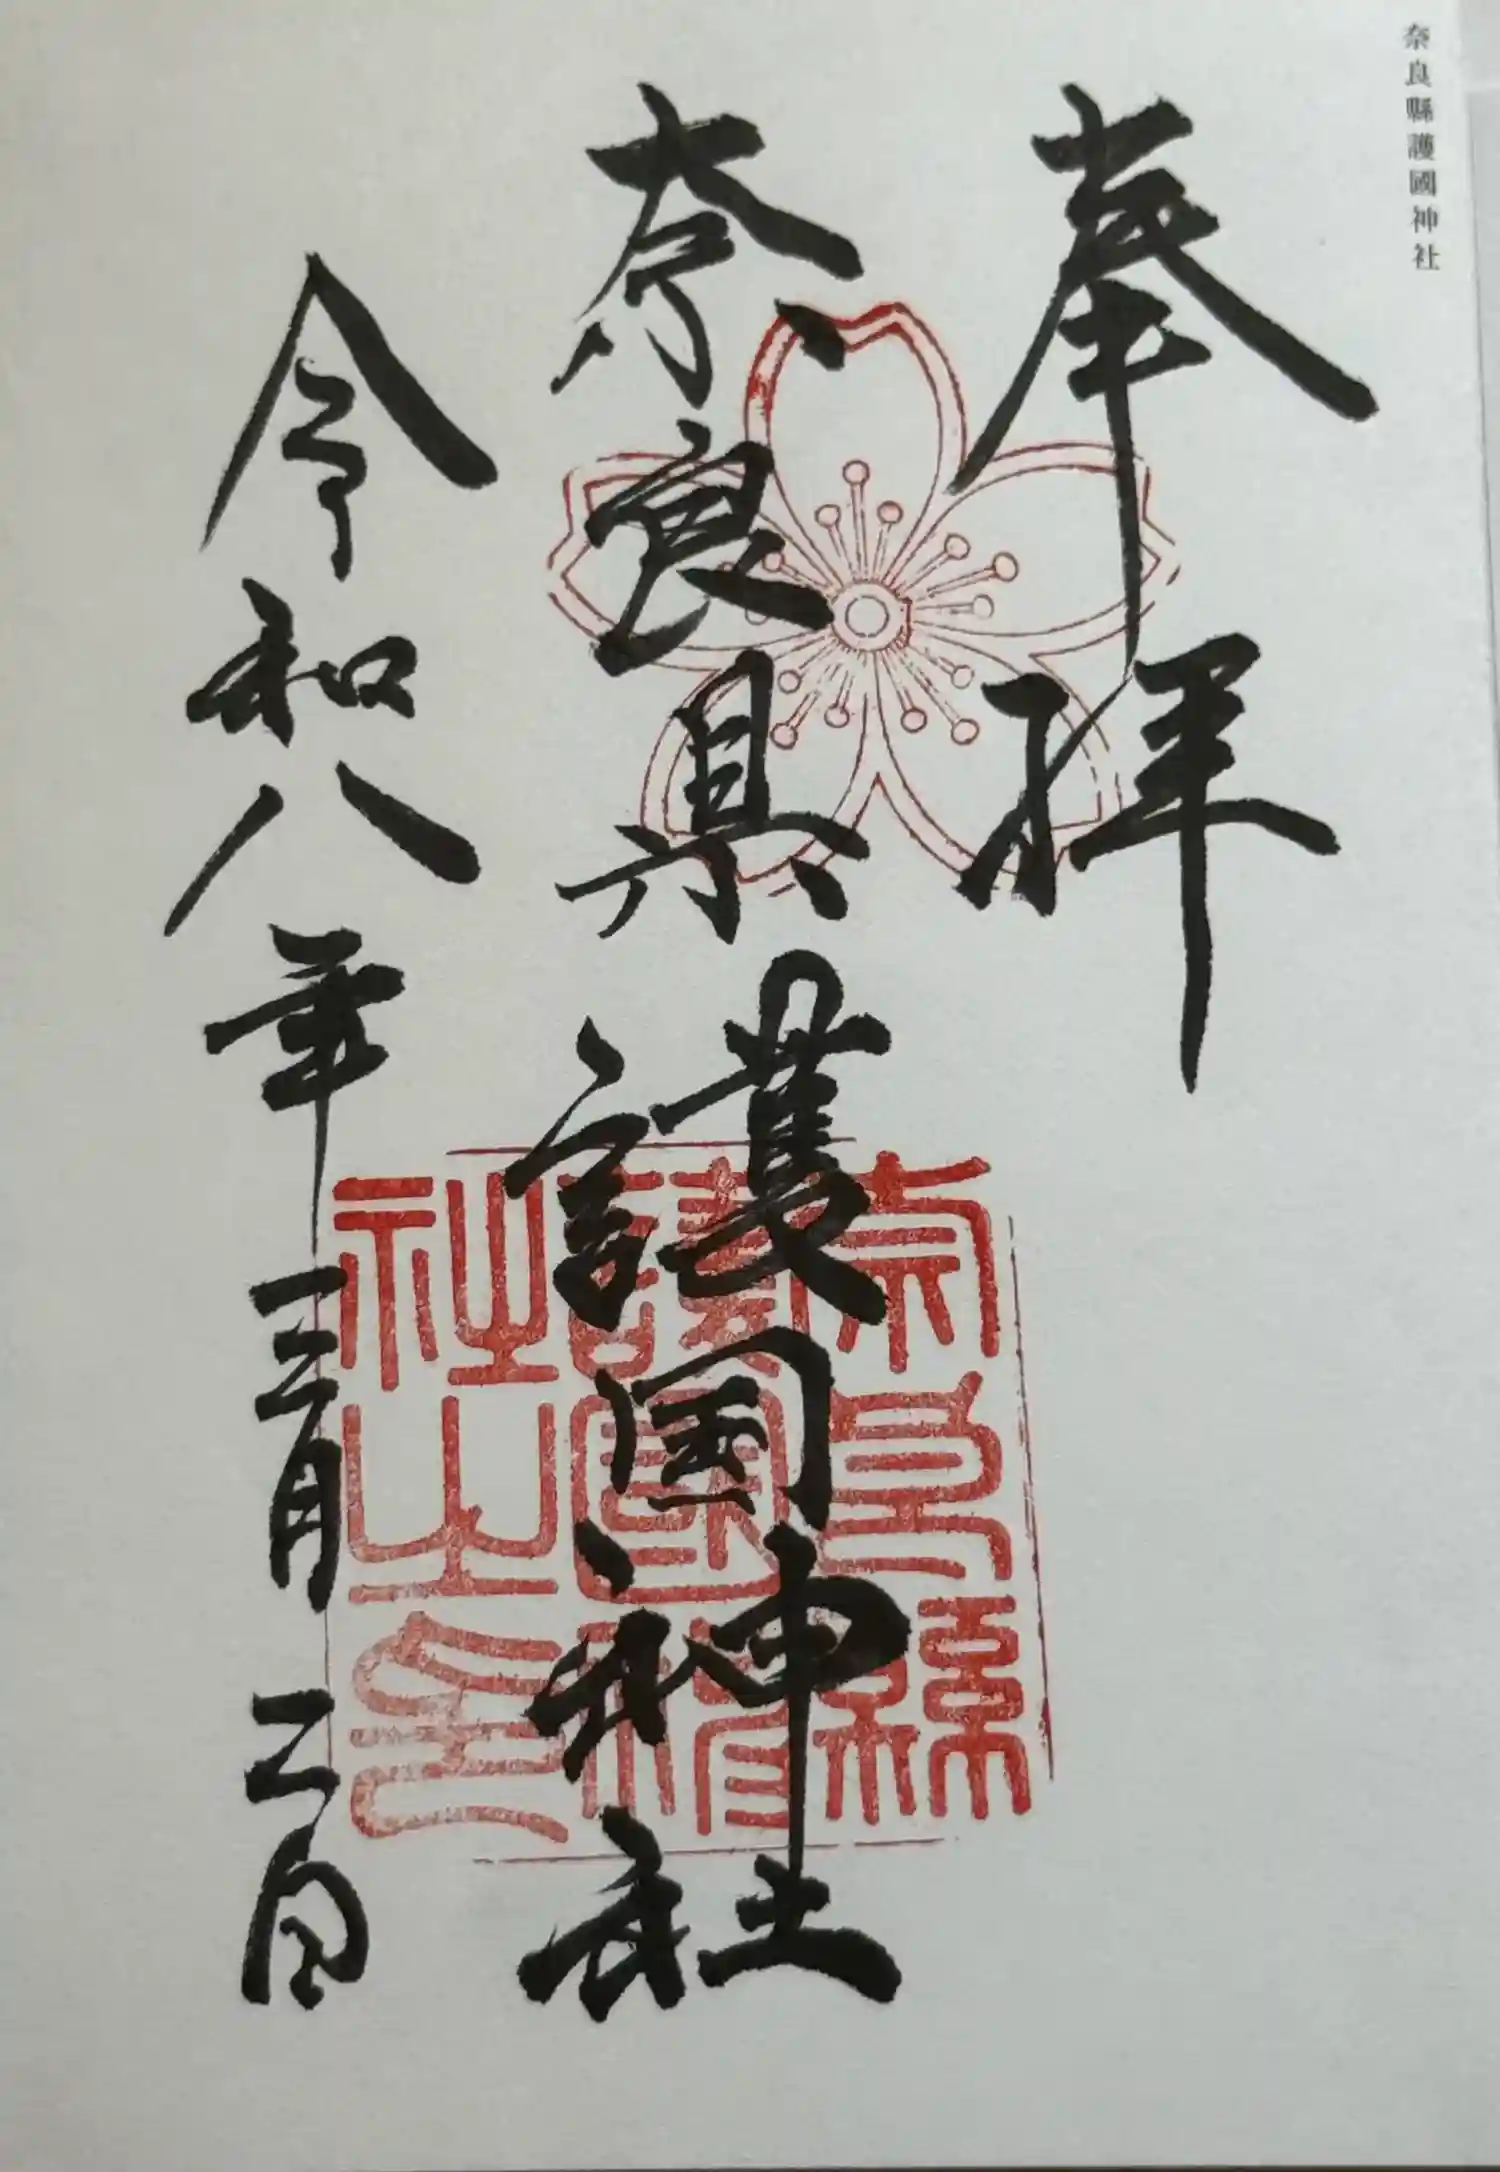 奈良縣護國神社
奉拝
奈良県護国神社
令和八年三月二日
奈良縣護國神社之印